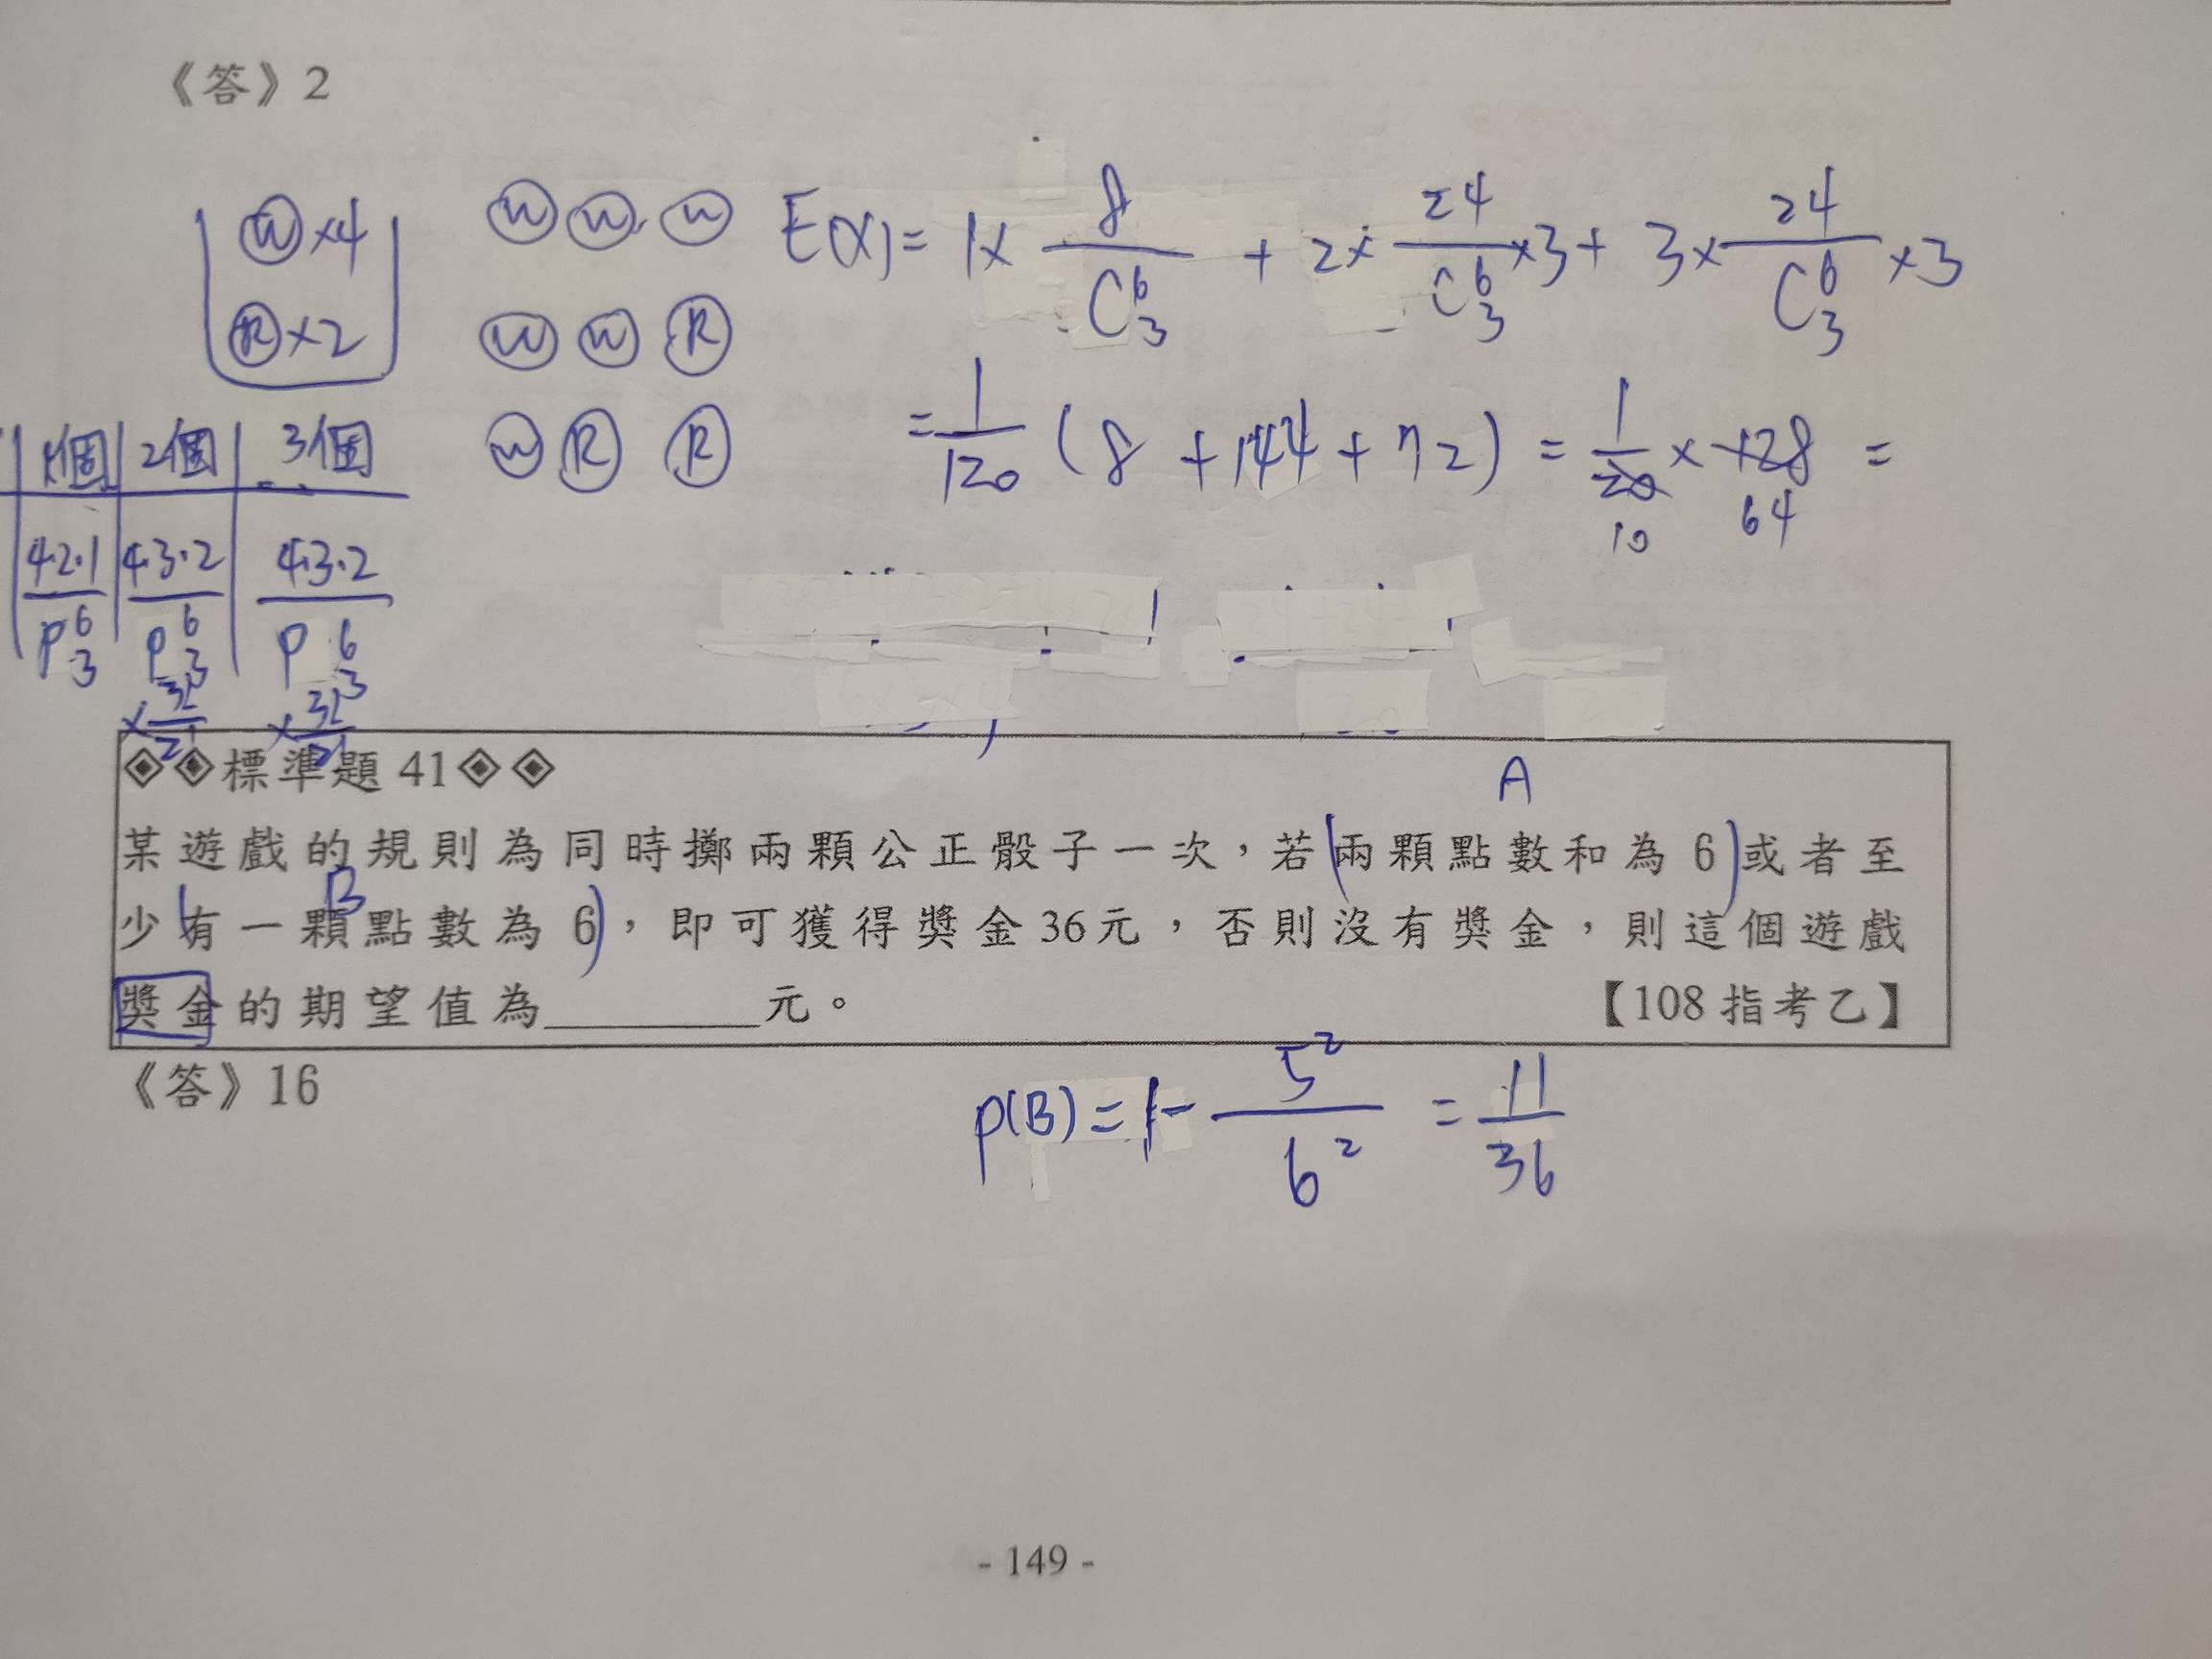 《答》2
W×4
R×2
W W W
W W R
W R R
E(X)= 1× 8/C⁶₃ + 2× 24/C⁶₃ ×3+ 3× 24/C⁶₃ ×3
= 1/120 (8 +144+72) = 1/20 × 128 =
10 64
1個 2個 3個
4·2·1/P⁶₃ 4·3·2/P⁶₃ 4·3·2/P⁶₃
◈◈標準題 41◈◈
A
某遊戲的規則為同時擲兩顆公正骰子一次，若(兩顆點數和為 6)或者至
B
少(有一顆點數為 6)，即可獲得獎金36元，否則沒有獎金，則這個遊戲
獎金的期望值為________元。 【108 指考乙】
《答》16
P(B)= 1- 5²/6² = 11/36
- 149 -